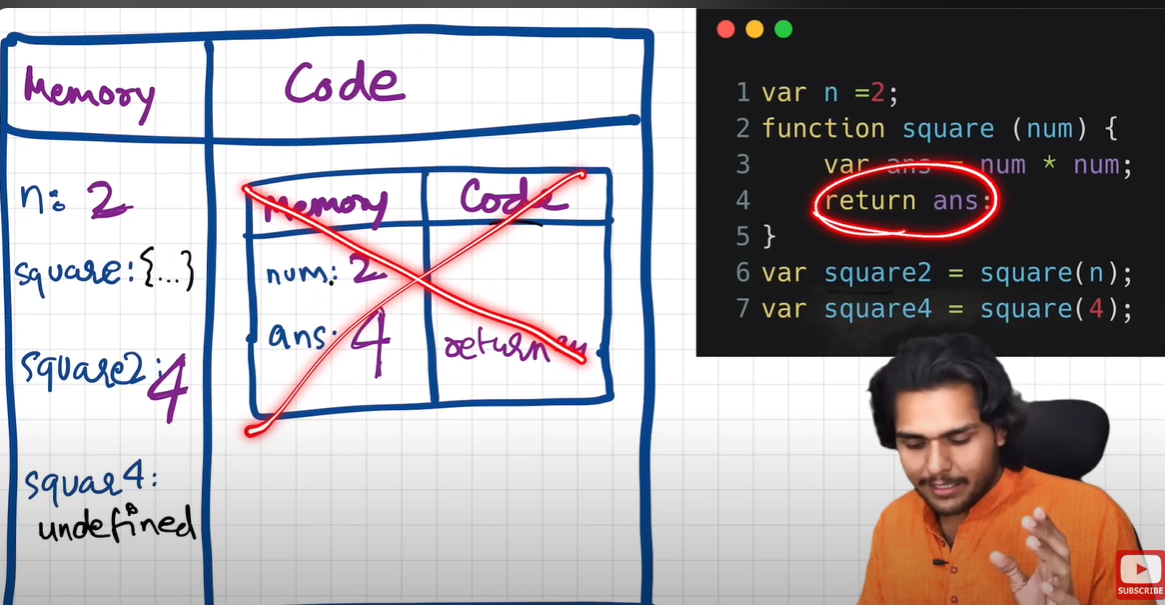 Memory
Code
n: 2
square: {...}
square2: 4
squar4:
undefined
Memory
Code
num: 2
ans: 4
return
1 var n =2;
2 function square (num) {
3 var ans = num * num;
4 return ans;
5 }
6 var square2 = square(n);
7 var square4 = square(4);
SUBSCRIBE